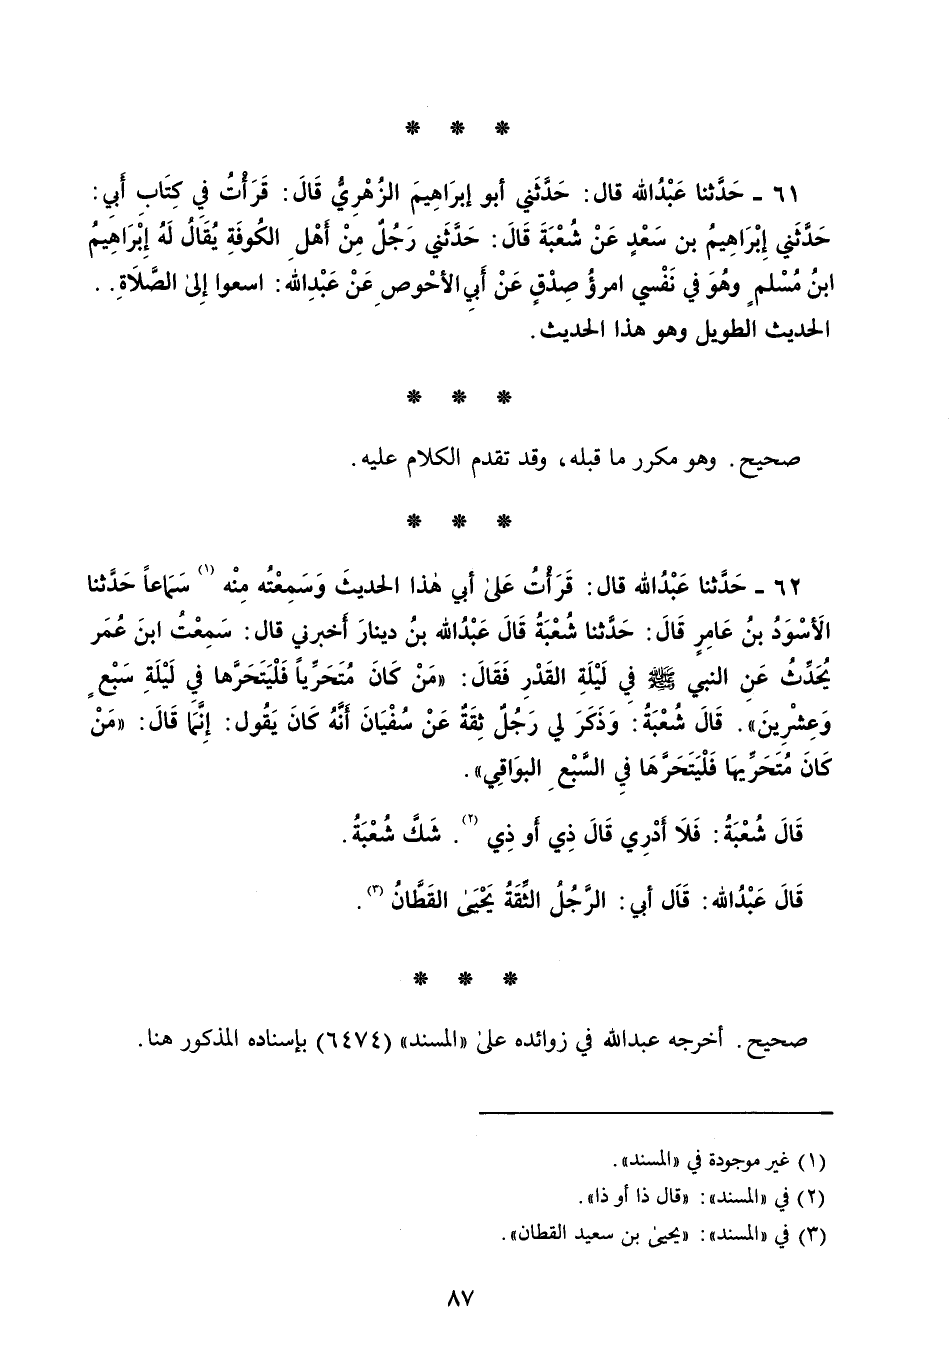 * * *
٦١ ـ حَدَّثنا عَبْدُالله قال: حَدَّثَني أبو إبرَاهِيمَ الزُهْرِيُّ قَالَ: قَرَأْتُ فِي كِتَابِ أَبي:
حَدَّثَني إِبْرَاهِيمُ بن سَعْدٍ عَنْ شُعْبَةَ قَالَ: حَدَّثَني رَجُلٌ مِنْ أَهْلِ الكُوفَةِ يُقَالُ لَهُ إِبْرَاهِيمُ
ابنُ مُسْلمٍ وهُوَ في نَفْسي امرؤُ صِدْقٍ عَنْ أَبي الأحْوصِ عَنْ عَبْدِالله: اسعوا إلىٰ الصَّلَاةِ. .
الحديث الطويل وهو هذا الحديث.
* * *
صحيح. وهو مكرر ما قبله، وقد تقدم الكلام عليه.
* * *
٦٢ ـ حَدَّثنا عَبْدُالله قال: قَرَأْتُ عَلىٰ أبي هٰذا الحديثَ وَسَمِعْتُه مِنْه (١) سَمَاعاً حَدَّثنا
الَأسْوَدُ بنُ عَامِرٍ قَالَ: حَدَّثنا شُعْبَةُ قَالَ عَبْدُالله بنُ دينارَ أَخبرني قال: سَمِعْتُ ابنَ عُمَر
يُحَدِّثُ عَنِ النبي ﷺ فِي لَيْلَةِ القَدْرِ فَقَالَ: «مَنْ كَانَ مُتَحَرِّياً فَلْيَتَحَرَّها فِي لَيْلَةِ سَبْعٍ
وَعِشْرِينَ». قَالَ شُعْبَةُ: وَذَكَرَ لي رَجُلٌ ثِقَةٌ عَنْ سُفْيَانَ أَنَّهُ كَانَ يَقُول: إِنَّمَا قَالَ: «مَنْ
كَانَ مُتَحَرِّيهَا فَلْيَتَحَرَّهَا فِي السَّبْعِ البوَاقِي».
قَالَ شُعْبَةُ: فَلَا أَدْرِي قَالَ ذِي أَو ذِي (٢). شَكَّ شُعْبَةُ.
قَالَ عَبْدُالله: قَاَل أبي: الرَّجُلُ الثِّقَةُ يَحْيَىٰ القَطَّانُ (٣).
* * *
صحيح. أخرجه عبدالله في زوائده علىٰ «المسند» (٦٤٧٤) بإسناده المذكور هنا.
(١) غير موجودة في «المسند».
(٢) في «المسند»: «قال ذا أو ذا».
(٣) في «المسند»: «يحيىٰ بن سعيد القطان».
٨٧